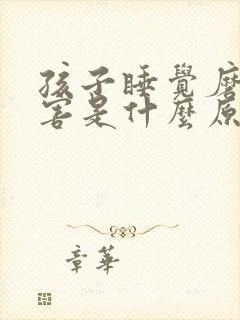 孩子睡覺磨
害是什麼原
章華